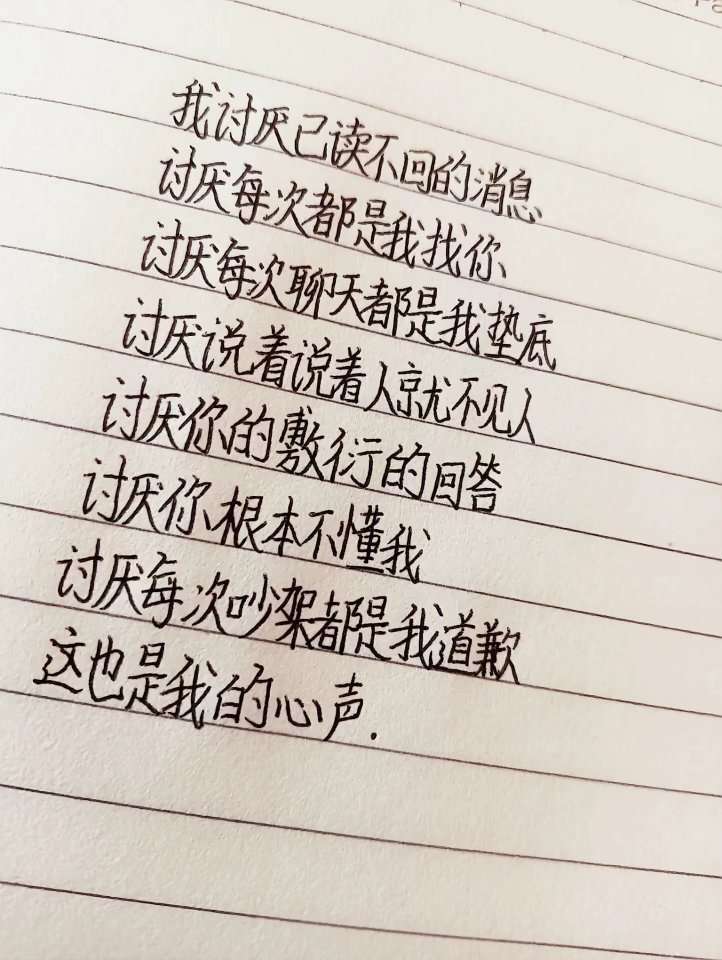 我讨厌已读不回的消息
讨厌每次都是我找你
讨厌每次聊天都是我垫底
讨厌说着说着人就不见人
讨厌你的敷衍的回答
讨厌你根本不懂我
讨厌每次吵架都是我道歉
这也是我的心声.